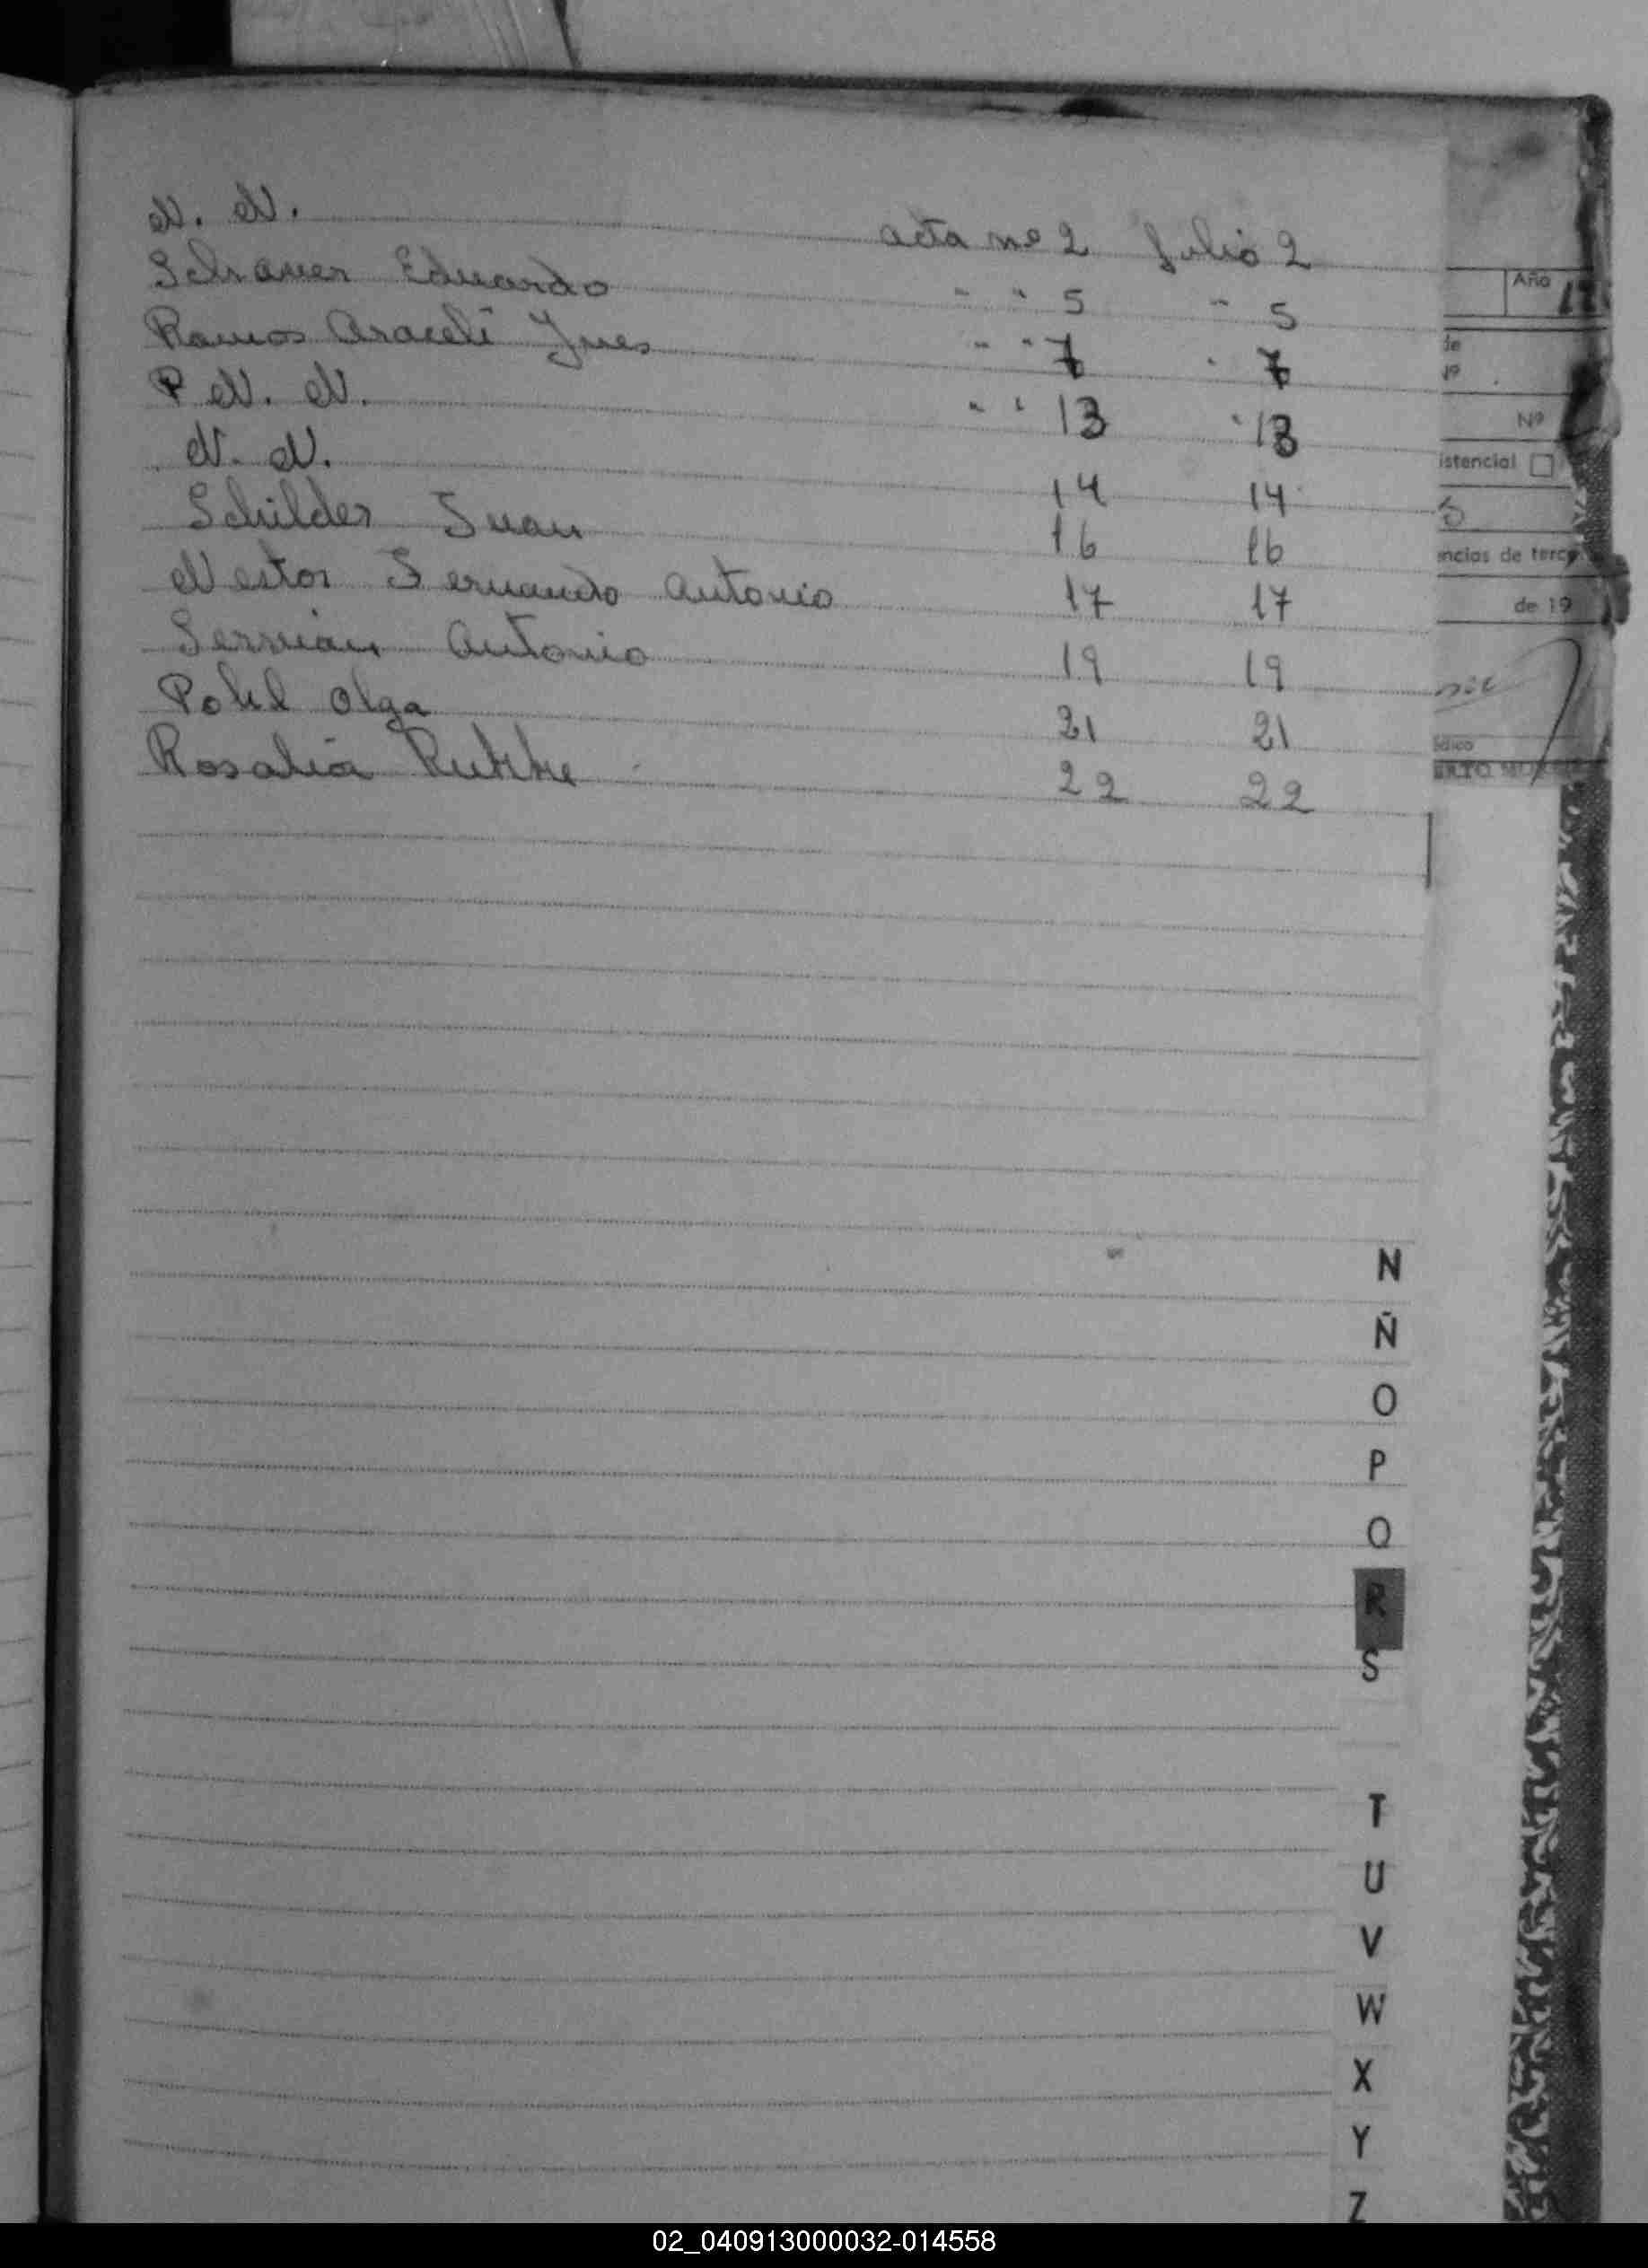 N. N. acta nº 2 folio 2
Schaner Eduardo " " 5 " 5
Ramos Araceli Ynes " " 7 " 7
P N. N. " " 13 " 13
N. N. 14 14
Schilder Juan 16 16
Nestor Fernando Antonio 17 17
Antonio 19 19
Pohl Olga 21 21
Rosalia 22 22
Año
de
Nº
Nº
istencial
ncias de terc
de 19
édico
N
Ñ
O
P
Q
R
S
T
U
V
W
X
Y
Z
02_040913000032-014558